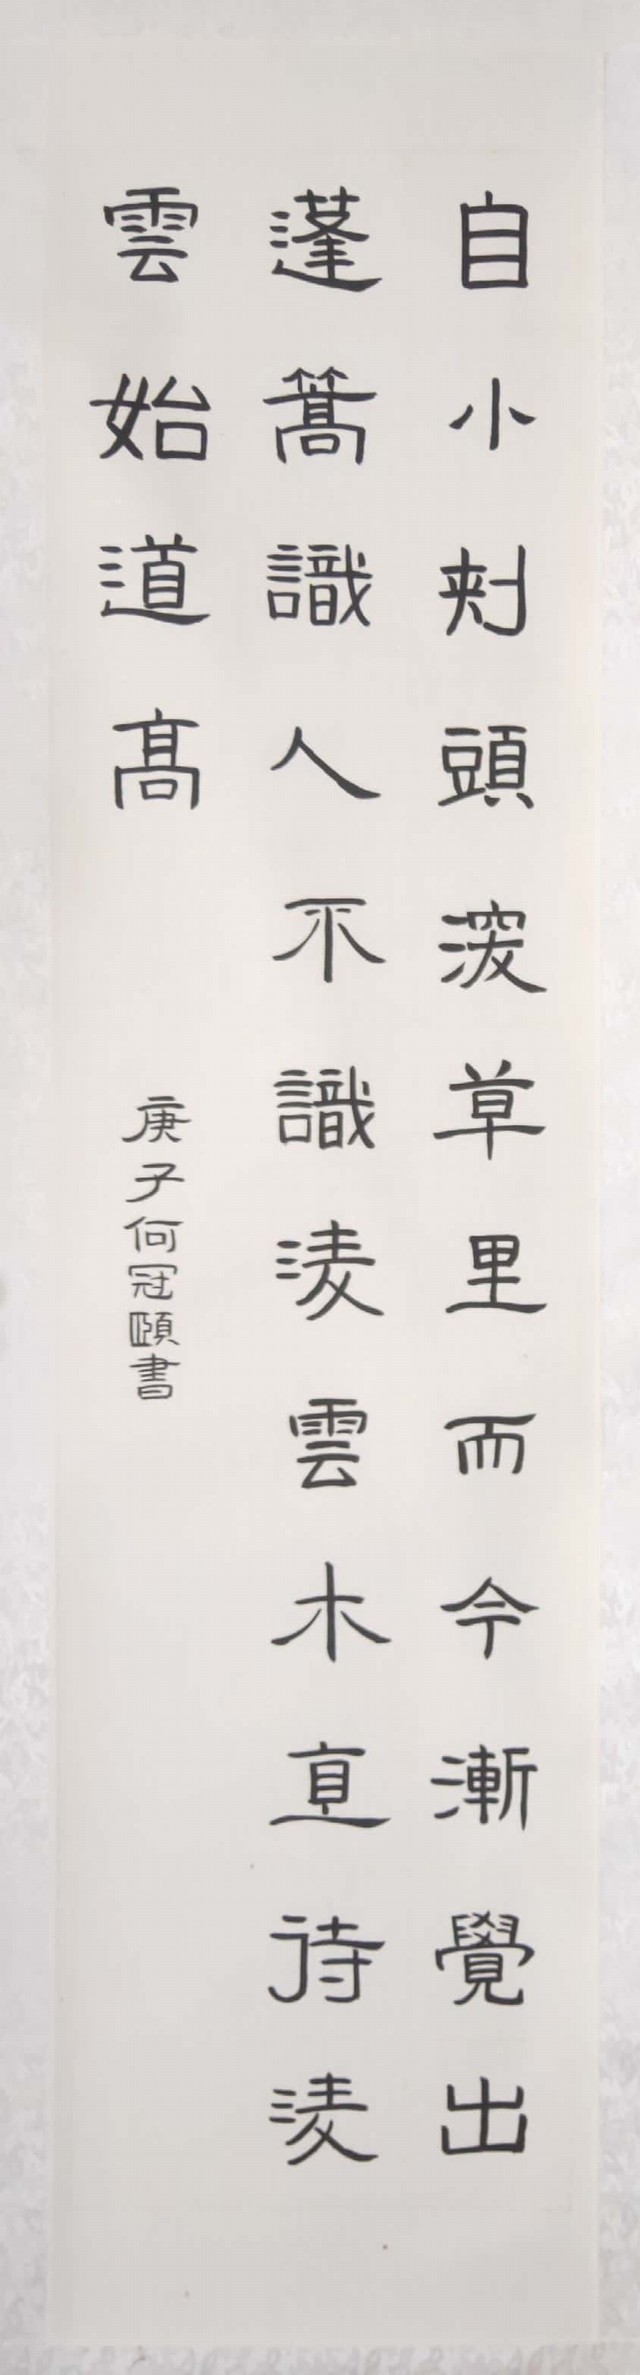 自小刾頭深草里而今漸覺出
蓬篙識人不識淩雲木直待淩
雲始道高
庚子何冠頤書